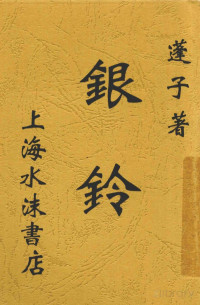 蓬子著
銀鈴
上海水沫書店